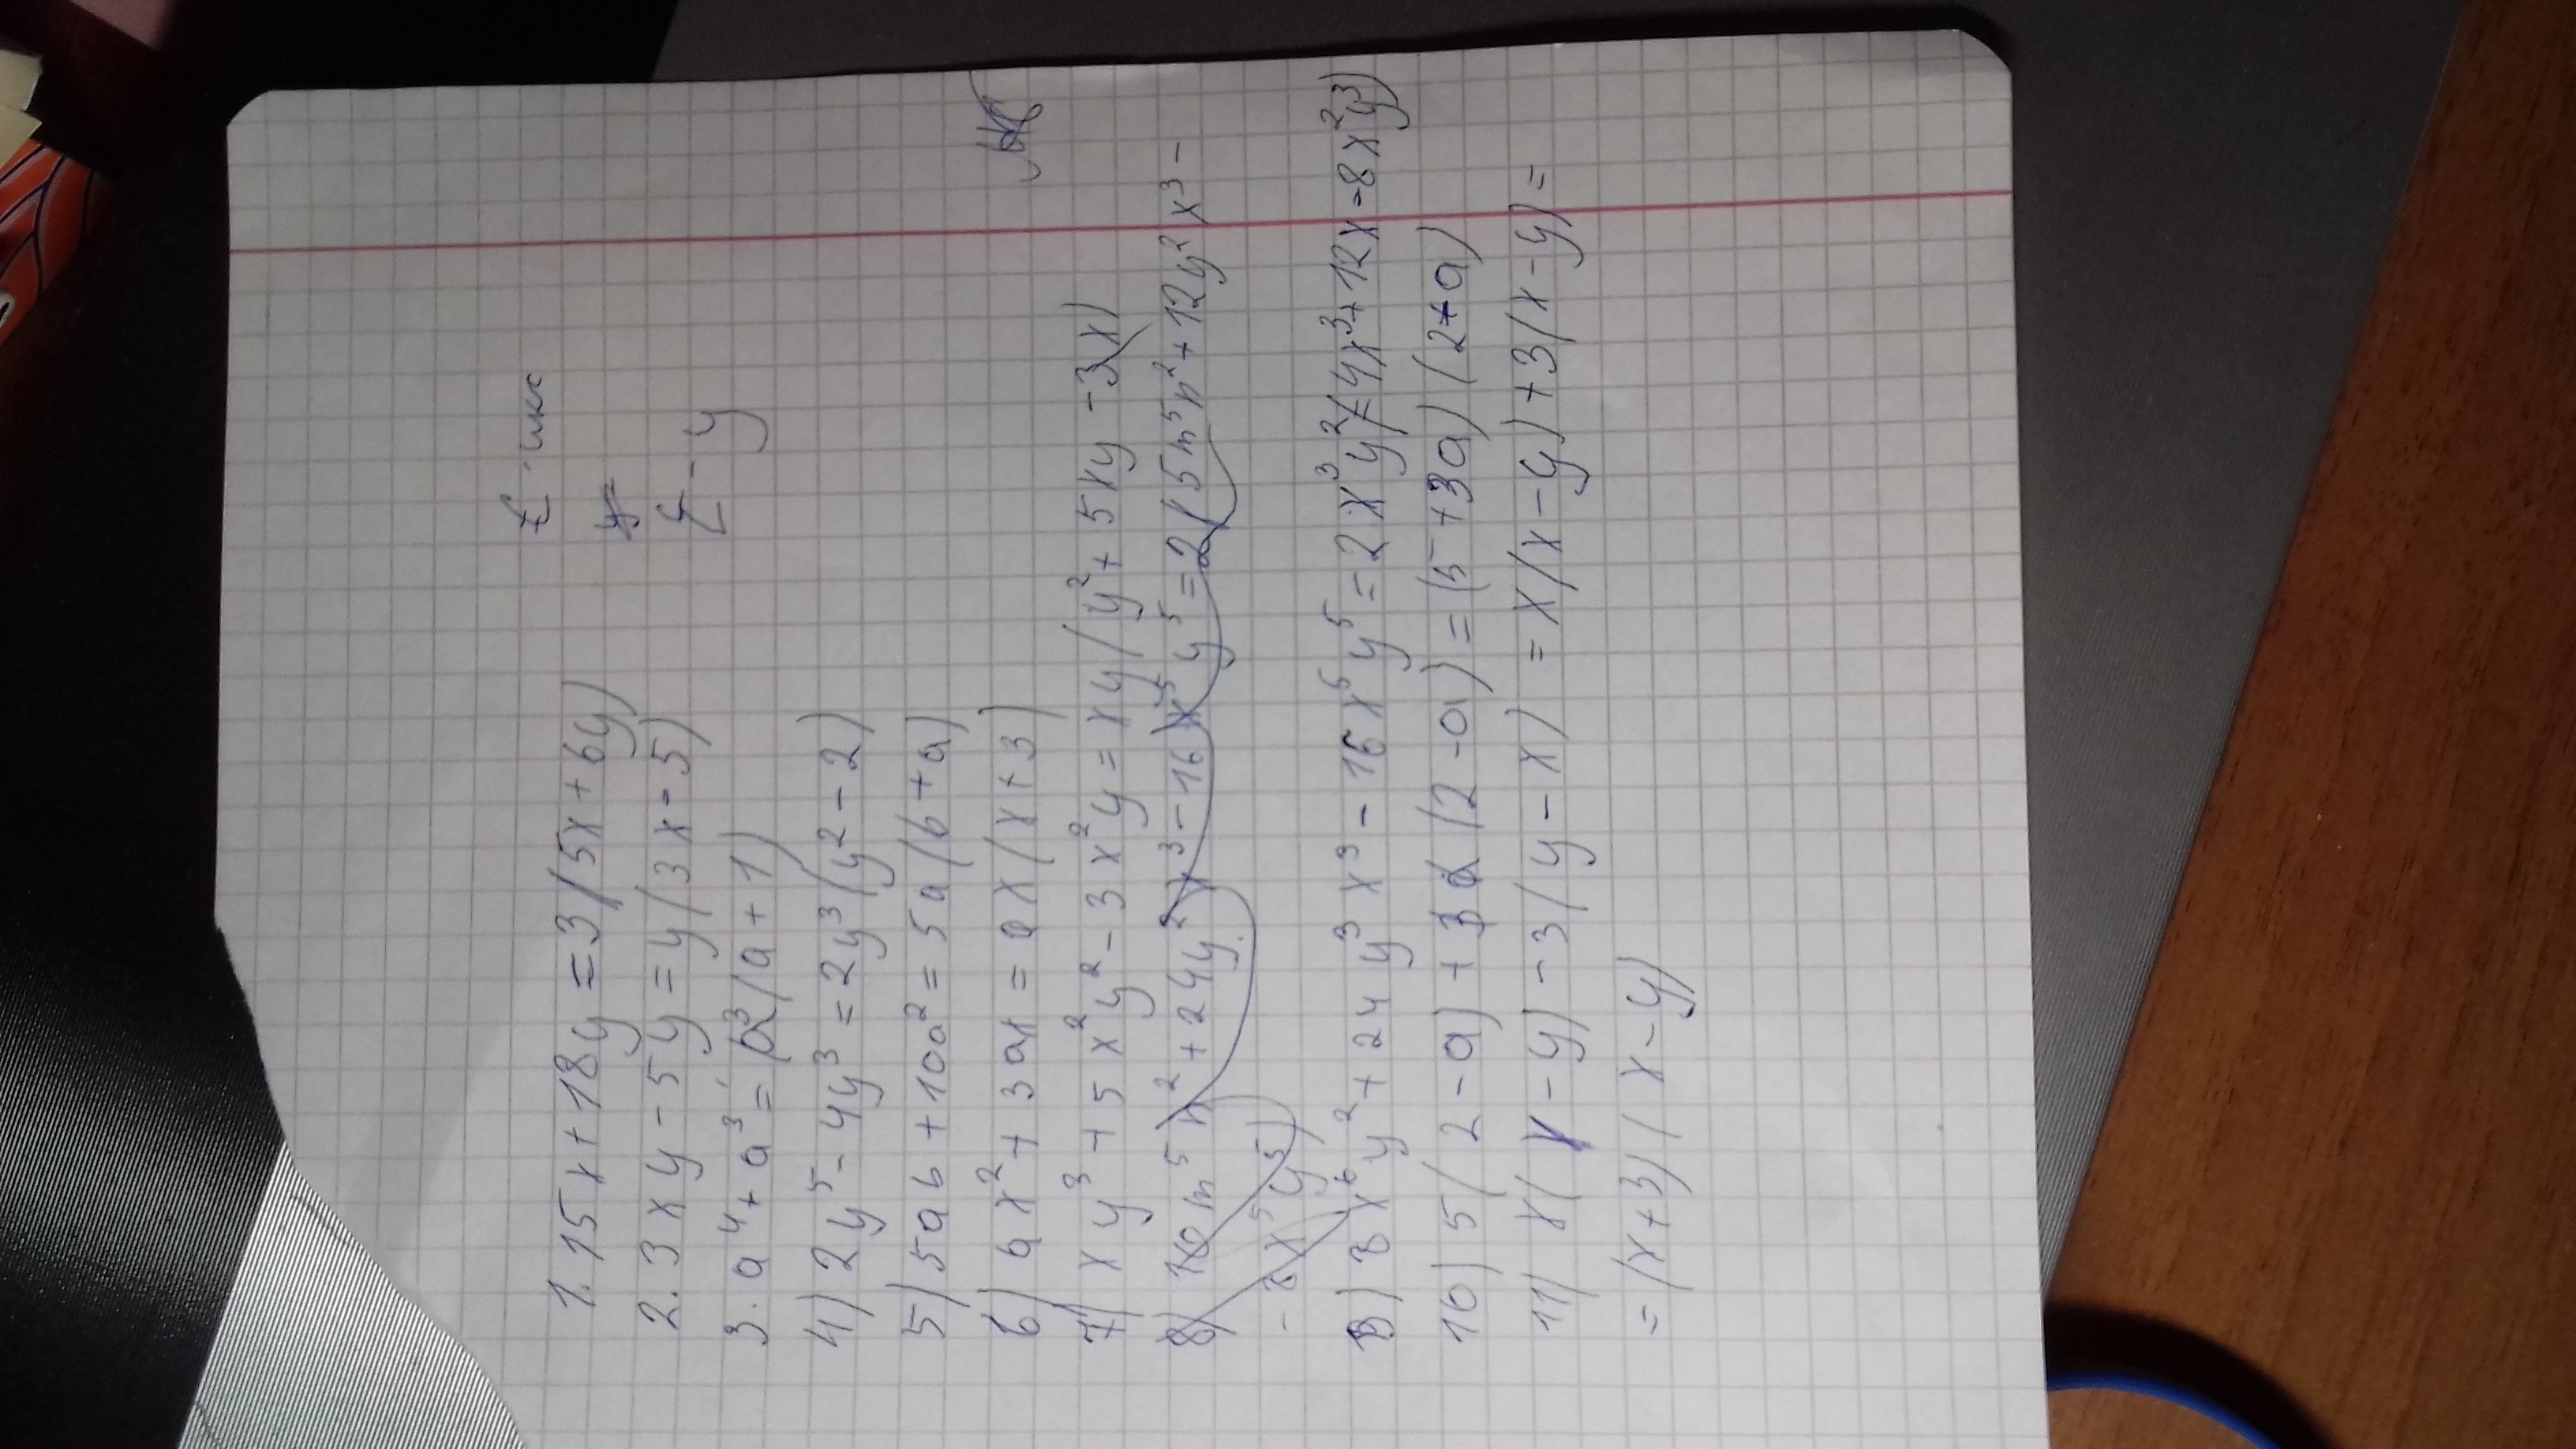 £ - икс
£ - y
1. 15x + 18y = 3(5x + 6y)
2. 3xy - 5y = y(3x - 5)
3. a⁴ + a³ = a³(a + 1)
4) 2y⁵ - 4y³ = 2y³(y² - 2)
5) 5ab + 10a² = 5a(b + a)
6) ax² + 3ax = ax(x + 3)
7) xy³ + 5x²y² - 3x²y = xy(y² + 5xy - 3x)
8) 10m⁵n² + 24y²x³ - 16x⁵y⁵ = 2(5m⁵n² + 12y²x³ -
- 8x⁵y⁵)
8x⁶y² + 24y³x³ - 16x⁵y⁵ = 2x³y²(4x³ + 12x - 8x²y³)
10) 5(2 - a) + 3a(2 - a) = (5 + 3a)(2 - a)
11) x(x - y) - 3(y - x) = x(x - y) + 3(x - y) =
= (x + 3)(x - y)